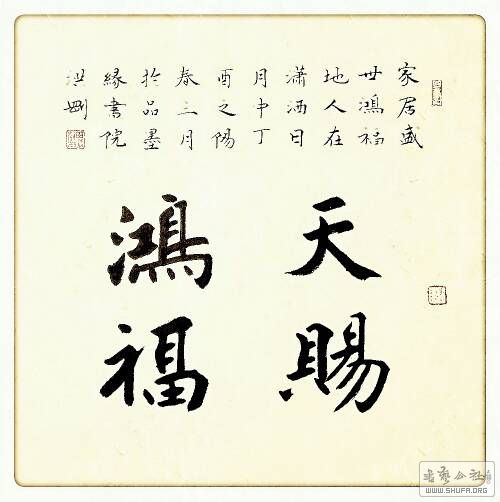 家居盛
世鴻福
地人在
瀟洒日
月中丁
酉之陽
春三月
於品墨
緣書院
洪
天賜
鴻福
書藝公社
WWW.SHUFA.ORG